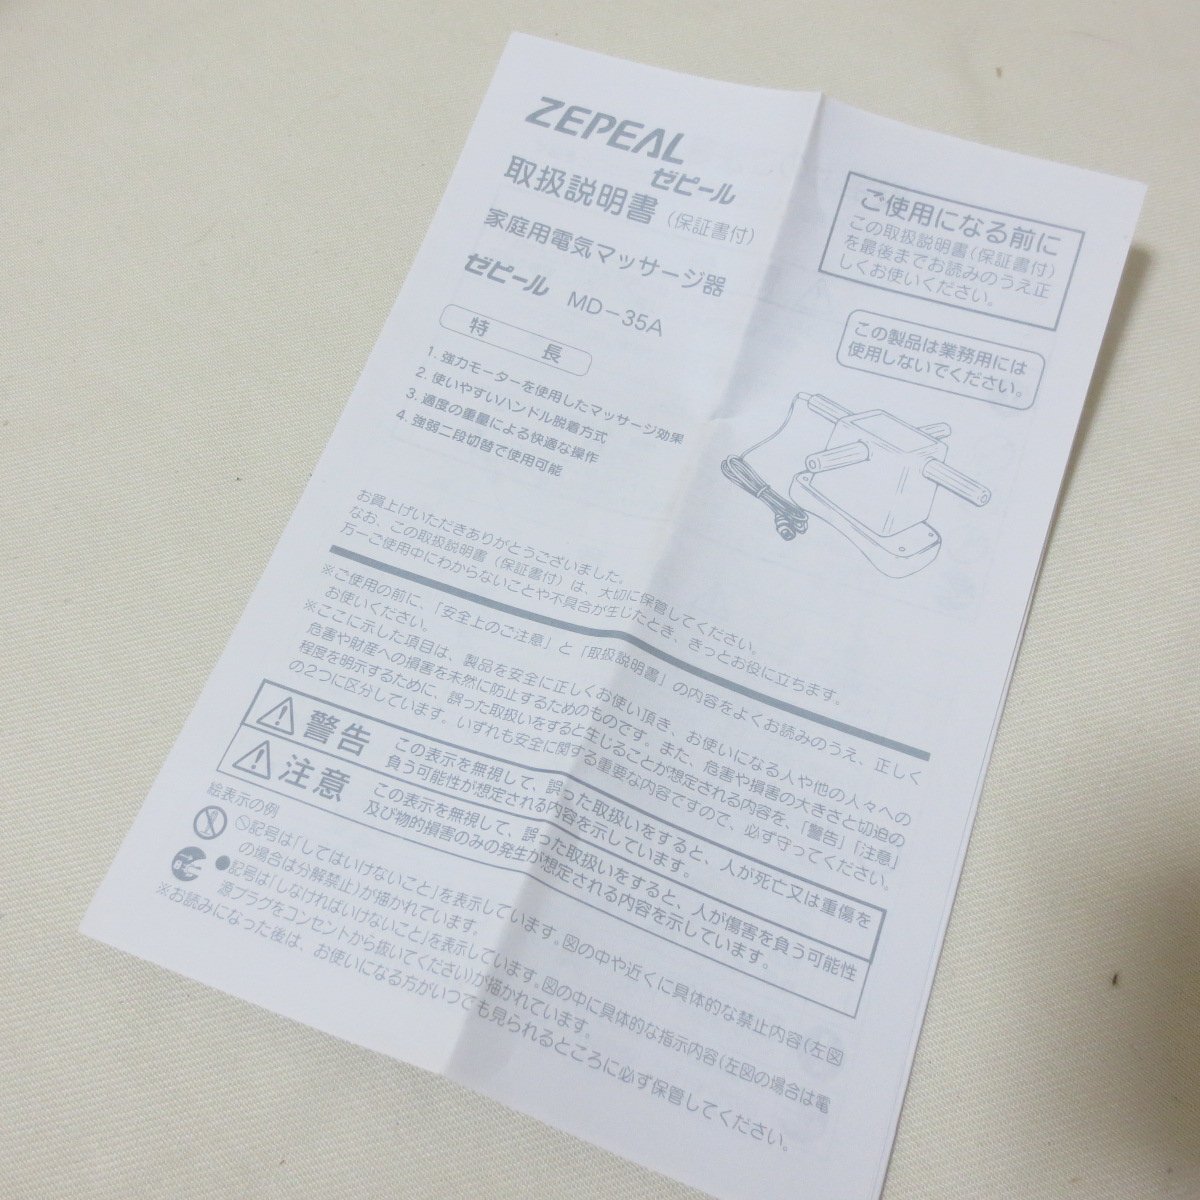 ZEPEAL
ゼピール
取扱説明書(保証書付)
家庭用電気マッサージ器
ゼピール MD－35A
特長
1. 強力モーターを使用したマッサージ効果
2. 使いやすいハンドル脱着方式
3. 適度の重量による快適な操作
4. 強弱二段切替で使用可能
ご使用になる前に
この取扱説明書(保証書付)
を最後までお読みのうえ正
しくお使いください。
この製品は業務用には
使用しないでください。
お買上げいただきありがとうございました。
なお、この取扱説明書（保証書付）は、大切に保管してください。
万一ご使用中にわからないことや不具合が生じたとき、きっとお役に立ちます。
※ご使用の前に、「安全上のご注意」と「取扱説明書」の内容をよくお読みのうえ、正しく
お使いください。
※ここに示した項目は、製品を安全に正しくお使い頂き、お使いになる人や他の人々への
危害や財産への損害を未然に防止するためのものです。また、危害や損害の大きさと切迫の
程度を明示するために、誤った取扱いをすると生じることが想定される内容を、「警告」「注意」
の２つに区分しています。いずれも安全に関する重要な内容ですので、必ず守ってください。
警告
この表示を無視して、誤った取扱いをすると、人が死亡又は重傷を
負う可能性が想定される内容を示しています。
注意
この表示を無視して、誤った取扱いをすると、人が傷害を負う可能性
及び物的損害のみの発生が想定される内容を示しています。
絵表示の例
記号は「してはいけないこと」を表示しています。図の中や近くに具体的な禁止内容(左図
の場合は分解禁止)が描かれています。
●記号は「しなければいけないこと」を表示しています。図の中に具体的な指示内容(左図の場合は電
源プラグをコンセントから抜いてください)が描かれています。
※お読みになった後は、お使いになる方がいつでも見られるところに必ず保管してください。